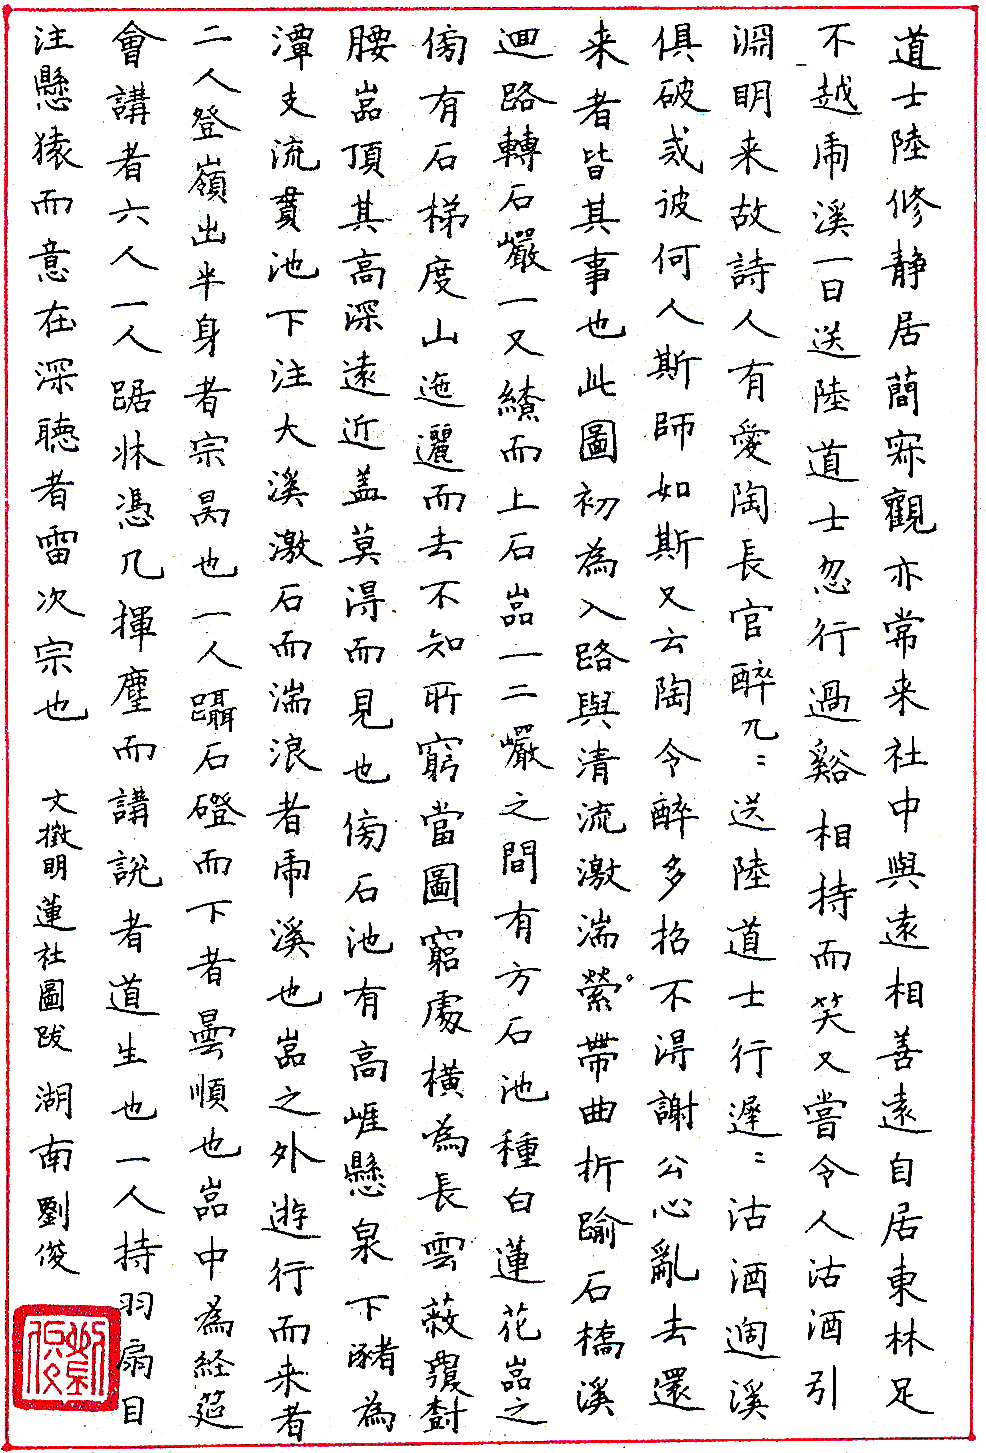 道士陸修静居蕳寂觀亦常来社中與遠相善遠自居東林足
不越虎溪一日送陸道士忽行過谿相持而笑又嘗令人沽酒引
淵明来故詩人有愛陶長官醉兀〻送陸道士行遲〻沽酒過溪
俱破戒彼何人斯師如斯又云陶令醉多招不得謝公心亂去還
来者皆其事也此圖初為入路與清流激湍縈帶曲折踰石橋溪
迴路轉石巖一又繚而上石嵓一二巖之間有方石池種白蓮花嵓之
傍有石梯度山迤邐而去不知所窮當圖窮處橫為長雲蔽覆樹
腰嵓頂其高深遠近蓋莫得而見也傍石池有高崕懸泉下瀦為
潭支流貫池下注大溪激石而湍浪者虎溪也嵓之外遊行而来者
二人登嶺出半身者宗昺也一人躡石磴而下者曇順也嵓中為経筵
會講者六人一人踞牀憑几揮麈而講說者道生也一人持羽扇目
注懸猿而意在深聽者雷次宗也 文徵明蓮社圖跋 湖南劉俊